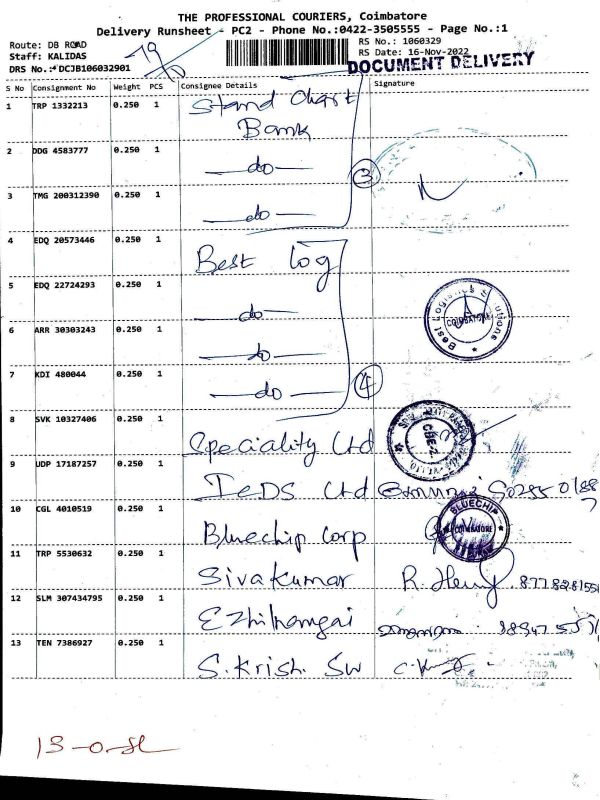 THE PROFESSIONAL COURIERS, Coimbatore
Delivery Runsheet - PC2 - Phone No.:0422-3505555 - Page No.:1
Route: DB ROAD
Staff: KALIDAS
DRS No.: DCJB106032901
19
RS No.: 1060329
RS Date: 16-Nov-2022
DOCUMENT DELIVERY
S No Consignment No Weight PCS Consignee Details Signature
1 TRP 1332213 0.250 1 Stand Chart
Bank
2 DDG 4583777 0.250 1 —do—
3
3 TMG 200312390 0.250 1 —do—
4 EDQ 20573446 0.250 1 Best log
5 EDQ 22724293 0.250 1 —do—
Best Logistics Solutions
COIMBATORE
6 ARR 30303243 0.250 1 —do—
7 KDI 480044 0.250 1 —do—
4
8 SVK 10327406 0.250 1 Speciality Ltd
CBE-2
9 UDP 17187257 0.250 1 IeDS Ltd
10 CGL 4010519 0.250 1 Bluechip Corp
BLUECHIP
COIMBATORE
11 TRP 5530632 0.250 1 Sivakumar R.
12 SLM 307434795 0.250 1 Ezhilhomgai
13 TEN 7386927 0.250 1 S.Krish. Sw
13-0-